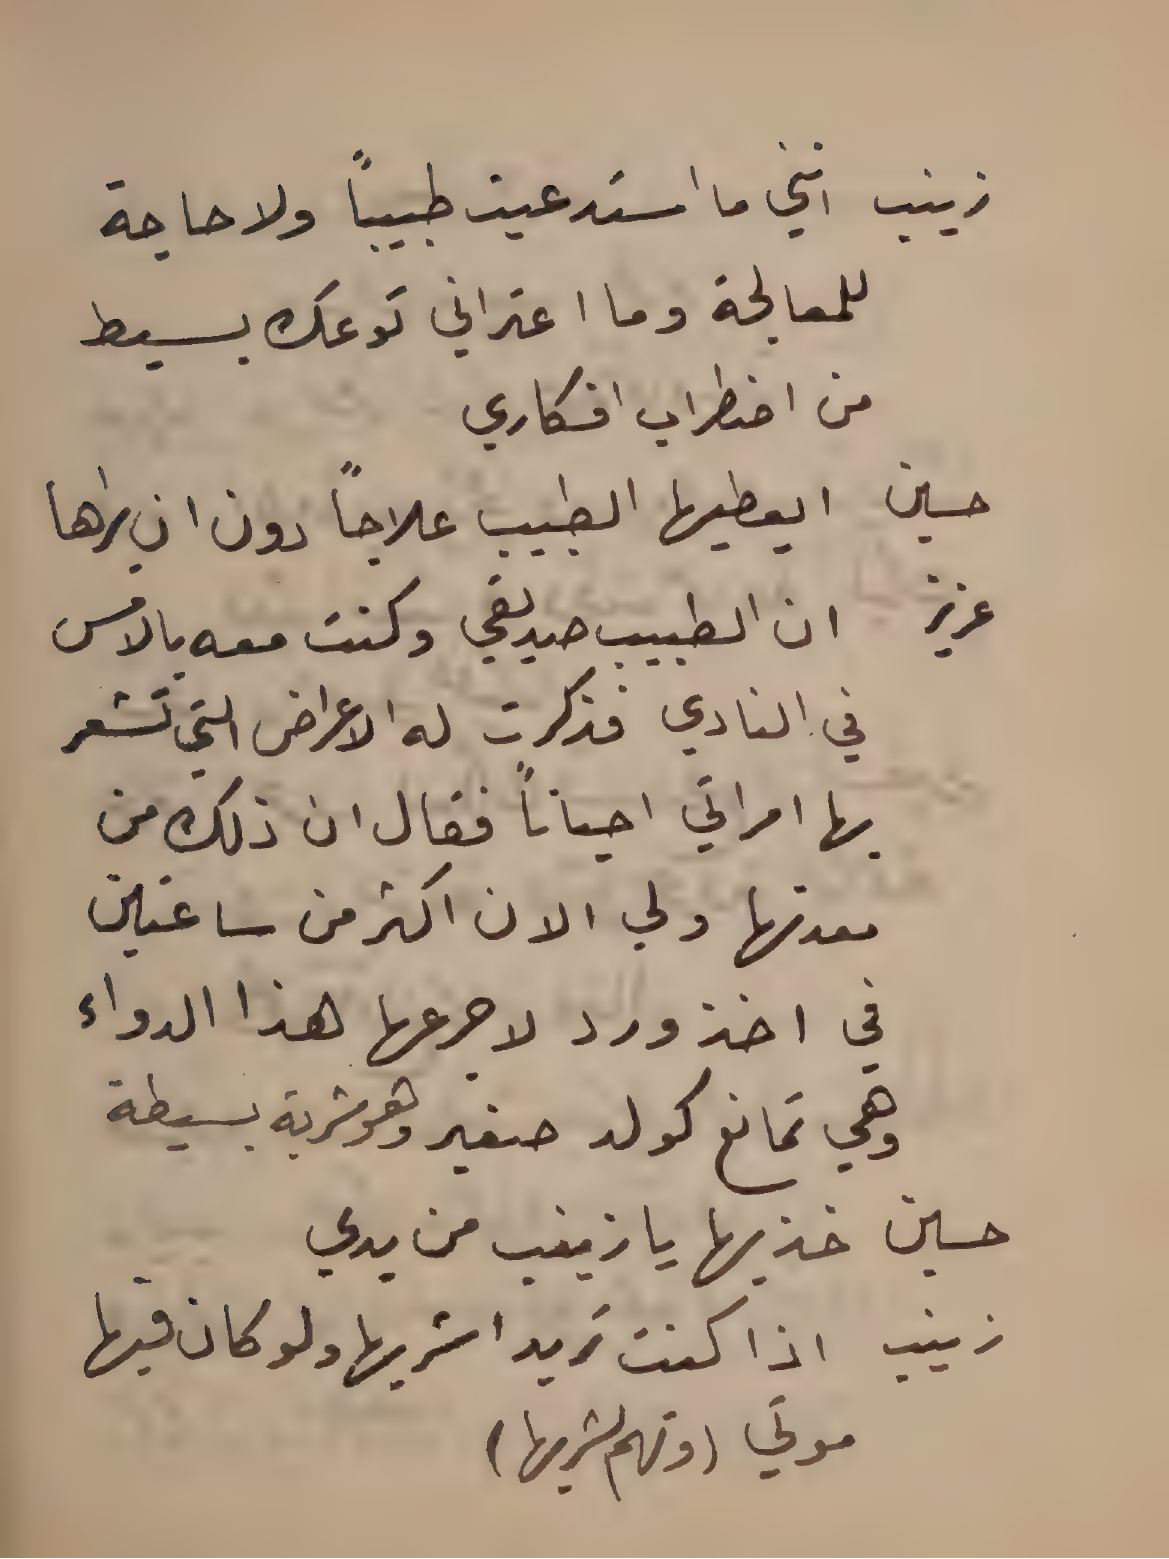 زينب انني ما استدعيت طبيباً ولا حاجة
للمعالجة وما اعتراني توعك بسيط
من اضطراب افكاري
حسين ايعطيها الطبيب علاجاً دون ان يراها
عزيز ان الطبيب صديقي وكنت معه بالامس
في النادي فذكرت له الاعراض التي تشعر
بها امراتي احياناً فقال ان ذلك من
معدتها ولي الان اكثر من ساعتين
في اخذ ورد لاجرعها هذا الدواء
وهي تمانع كولد صغير وهو شربة بسيطة
حسين خذيها يا زينب من يدي
زينب اذا كنت تريد اشربها ولو كان فيها
موتي (وتهم لشربها)